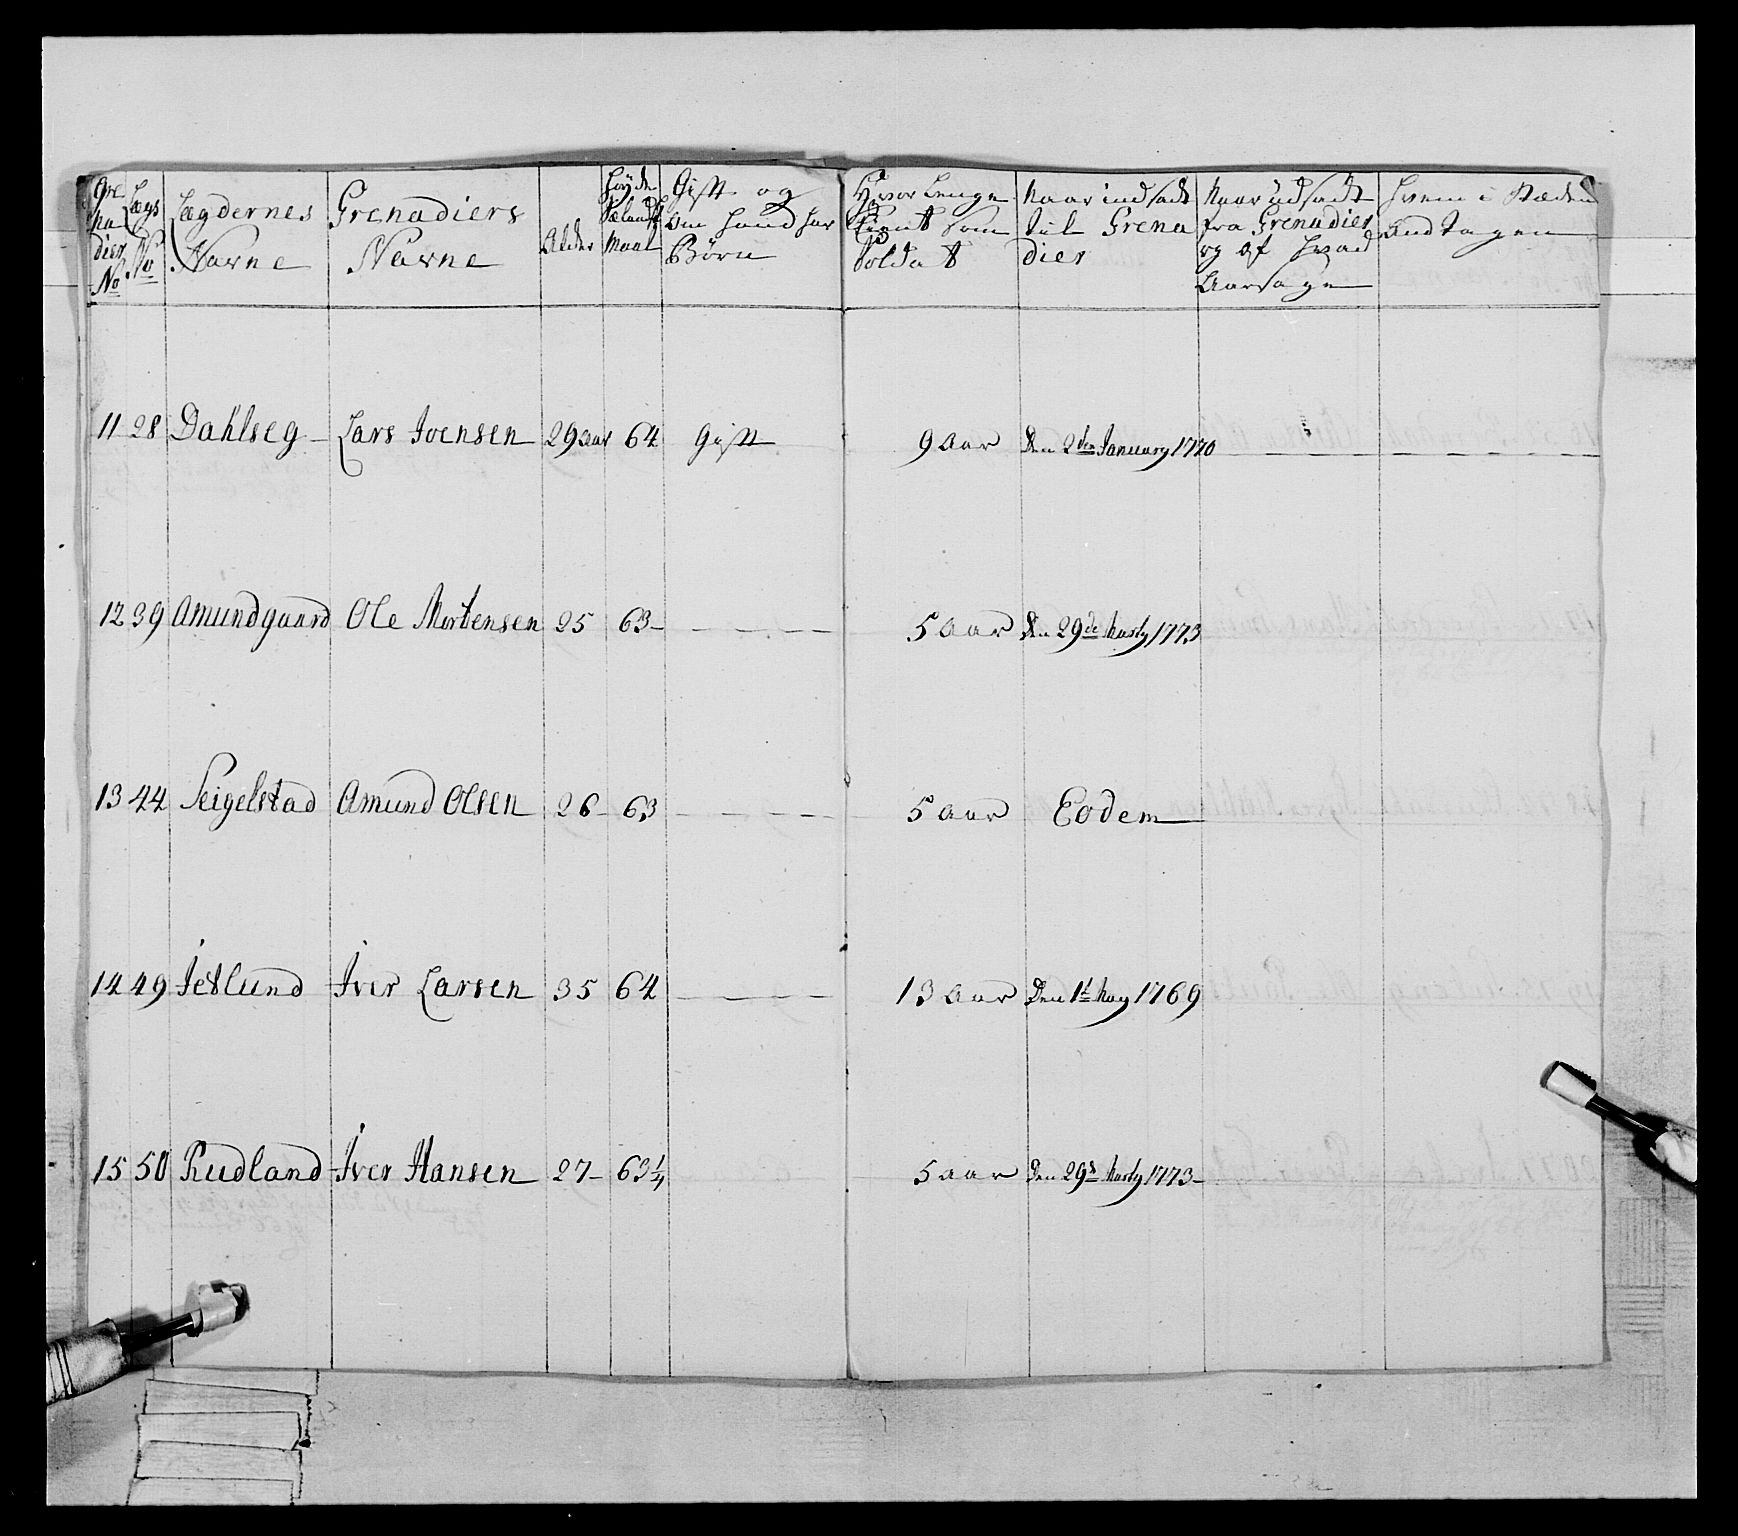 Gre
na
dier
No
Lægs
No
Lægdernes
Navne
Grenadiers
Navne
Alder
Høyde
Sælandsk
Maal
Gift og
om hand har
Børn
Hvor Lenge
tient som
Soldat
Naar indsadt
til Grena
dier
Naar udsadt
fra Grenadier
og af hvad
Aarsage
Hvem i Stæden
andtagen
11 28 Dahlseg Lars Joensen 29 aar 64 Gift 9 Aar Den 2den January 1770
12 39 Amundgaard Ole Mortensen 25 63 5 Aar Den 29de Marty 1773
13 44 Seigelstad Amund Olsen 26 63 5 Aar Eodem
14 49 Jetlund Iver Larsen 35 64 13 Aar Den 1t May 1769
15 50 Rudland Iver Hansen 27 63 1/4 5 aar Den 29d Marty 1773